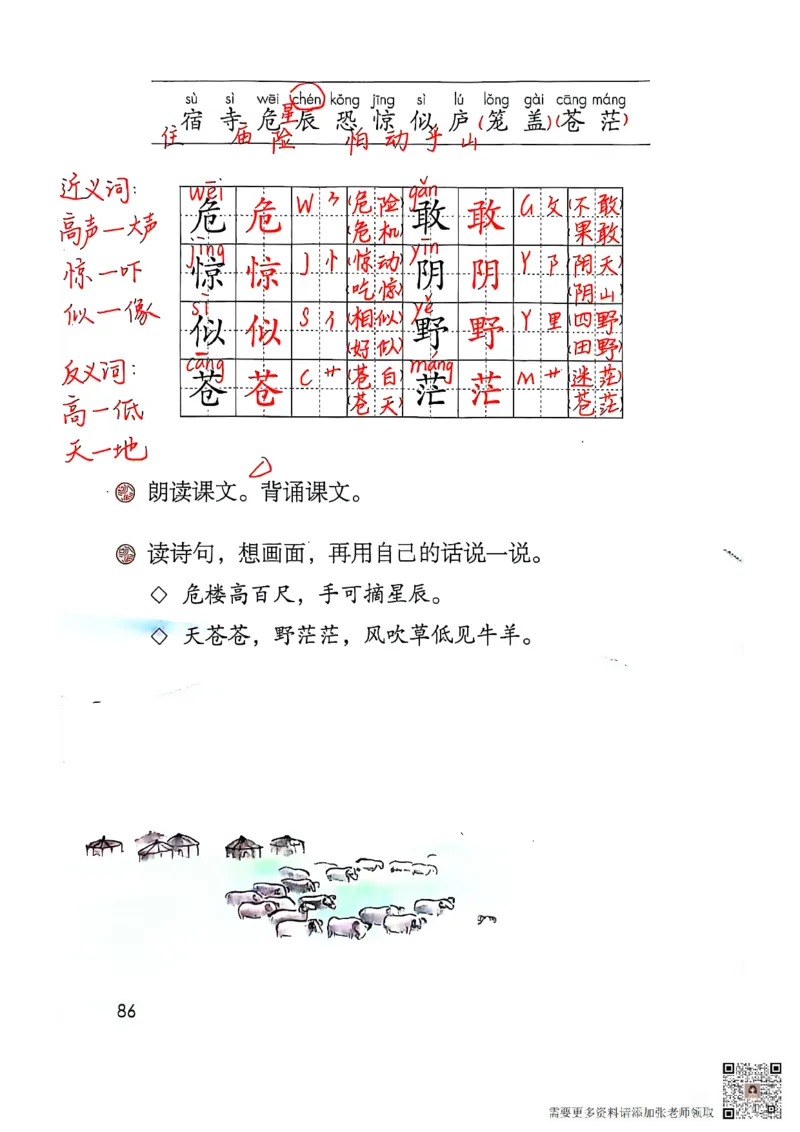 sù sì wēi chén kǒng jīng sì lú lǒng gài cāng máng
宿 寺 危 星辰 恐 惊 似 庐 (笼 盖)(苍 茫)
住 庙 险 怕 动 乎 山
近义词:
高声—大声
惊—吓
似—像
反义词:
高—低
天—地
wēi 危 危 W ⺈ (危险) (危机) gǎn 敢 敢 G 攵 (不敢) (果敢)
jīng 惊 惊 J 忄 (惊动) (吃惊) yīn 阴 阴 Y 阝 (阴天) (阴山)
sì 似 似 S 亻 (相似) (好似) yě 野 野 Y 里 (四野) (田野)
cāng 苍 苍 C 艹 (苍白) (苍天) máng 茫 茫 M 艹 (迷茫) (苍茫)
朗读课文。背诵课文。
读诗句，想画面，再用自己的话说一说。
◇ 危楼高百尺，手可摘星辰。
◇ 天苍苍，野茫茫，风吹草低见牛羊。
86
需要更多资料请添加张老师领取